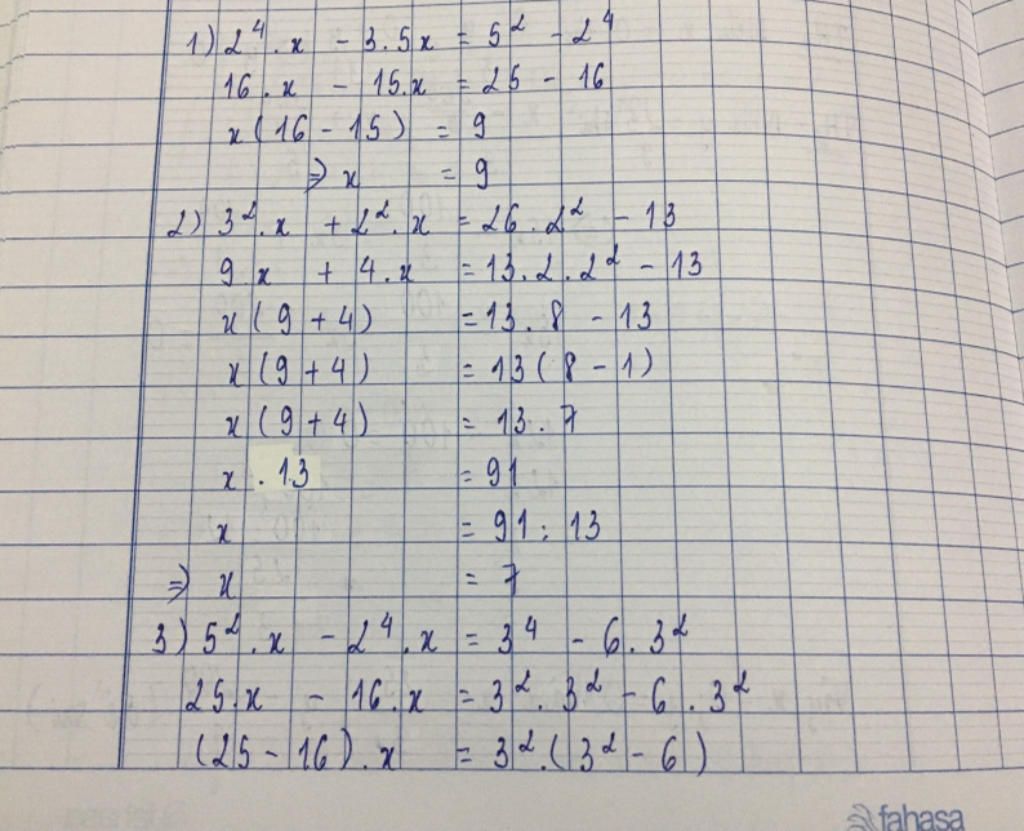 1) 2⁴.x - 3.5x = 5² - 2⁴
16.x - 15.x = 25 - 16
x(16 - 15) = 9
⇒ x = 9
2) 3².x + 2².x = 26.2² - 13
9.x + 4.x = 13.2.2² - 13
x(9 + 4) = 13.8 - 13
x(9 + 4) = 13(8 - 1)
x(9 + 4) = 13.7
x.13 = 91
x = 91 : 13
⇒ x = 7
3) 5².x - 2⁴.x = 3⁴ - 6.3²
25.x - 16.x = 3².3² - 6.3²
(25 - 16).x = 3².(3² - 6)
fahasa